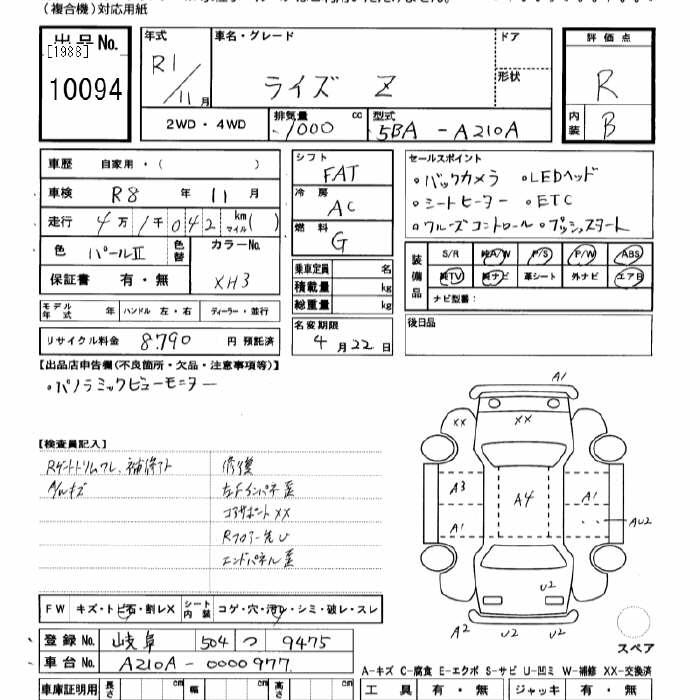 (複合機)対応用紙
出品No.
[1988]
10094
年式
R1/11月
車名・グレード
ライズ Z
ドア
形状
2WD・4WD
排気量 1000 cc
型式 5BA-A210A
評価点
R
内装 B
車歴 自家用・( )
車検 R8 年 11 月
走行 4万1千042 km マイル( )
色 パールII 色替
カラーNo. XH3
保証書 有・無
モデル年式 年 ハンドル 左・右 ディーラー・並行
リサイクル料金 8,790 円 預託済
シフト FAT
冷房 AC
燃料 G
乗車定員 名
積載量 kg
総重量 kg
名変期限
4月22日
セールスポイント
・バックカメラ ・LEDヘッド
・シートヒーター ・ETC
・クルーズコントロール ・プッシュスタート
装備品
S/R 純A/W P/S P/W ABS
純TV 純ナビ 革シート 外ナビ エアB
ナビ型番:
後日品
【出品店申告欄(不良箇所・欠品・注意事項等)】
・パノラミックビューモニター
【検査員記入】
修復
左Fインパネ歪
コアサポートXX
Rフロアー先U
エンドパネル歪
A1
XX
XX
A3
A4
A1
A1
AU2
U2
A2
U2
U2
スペア
FW キズ・トビ石・割レX シート内装 コゲ・穴・汚レ・シミ・破レ・スレ
登録No. 岐阜 504 つ 9475
車台No. A210A-0000977
A-キズ C-腐食 E-エクボ S-サビ U-凹ミ W-補修 XX-交換済
車庫証明用 長さ cm 幅 cm 高さ cm
工具 有・無 ジャッキ 有・無